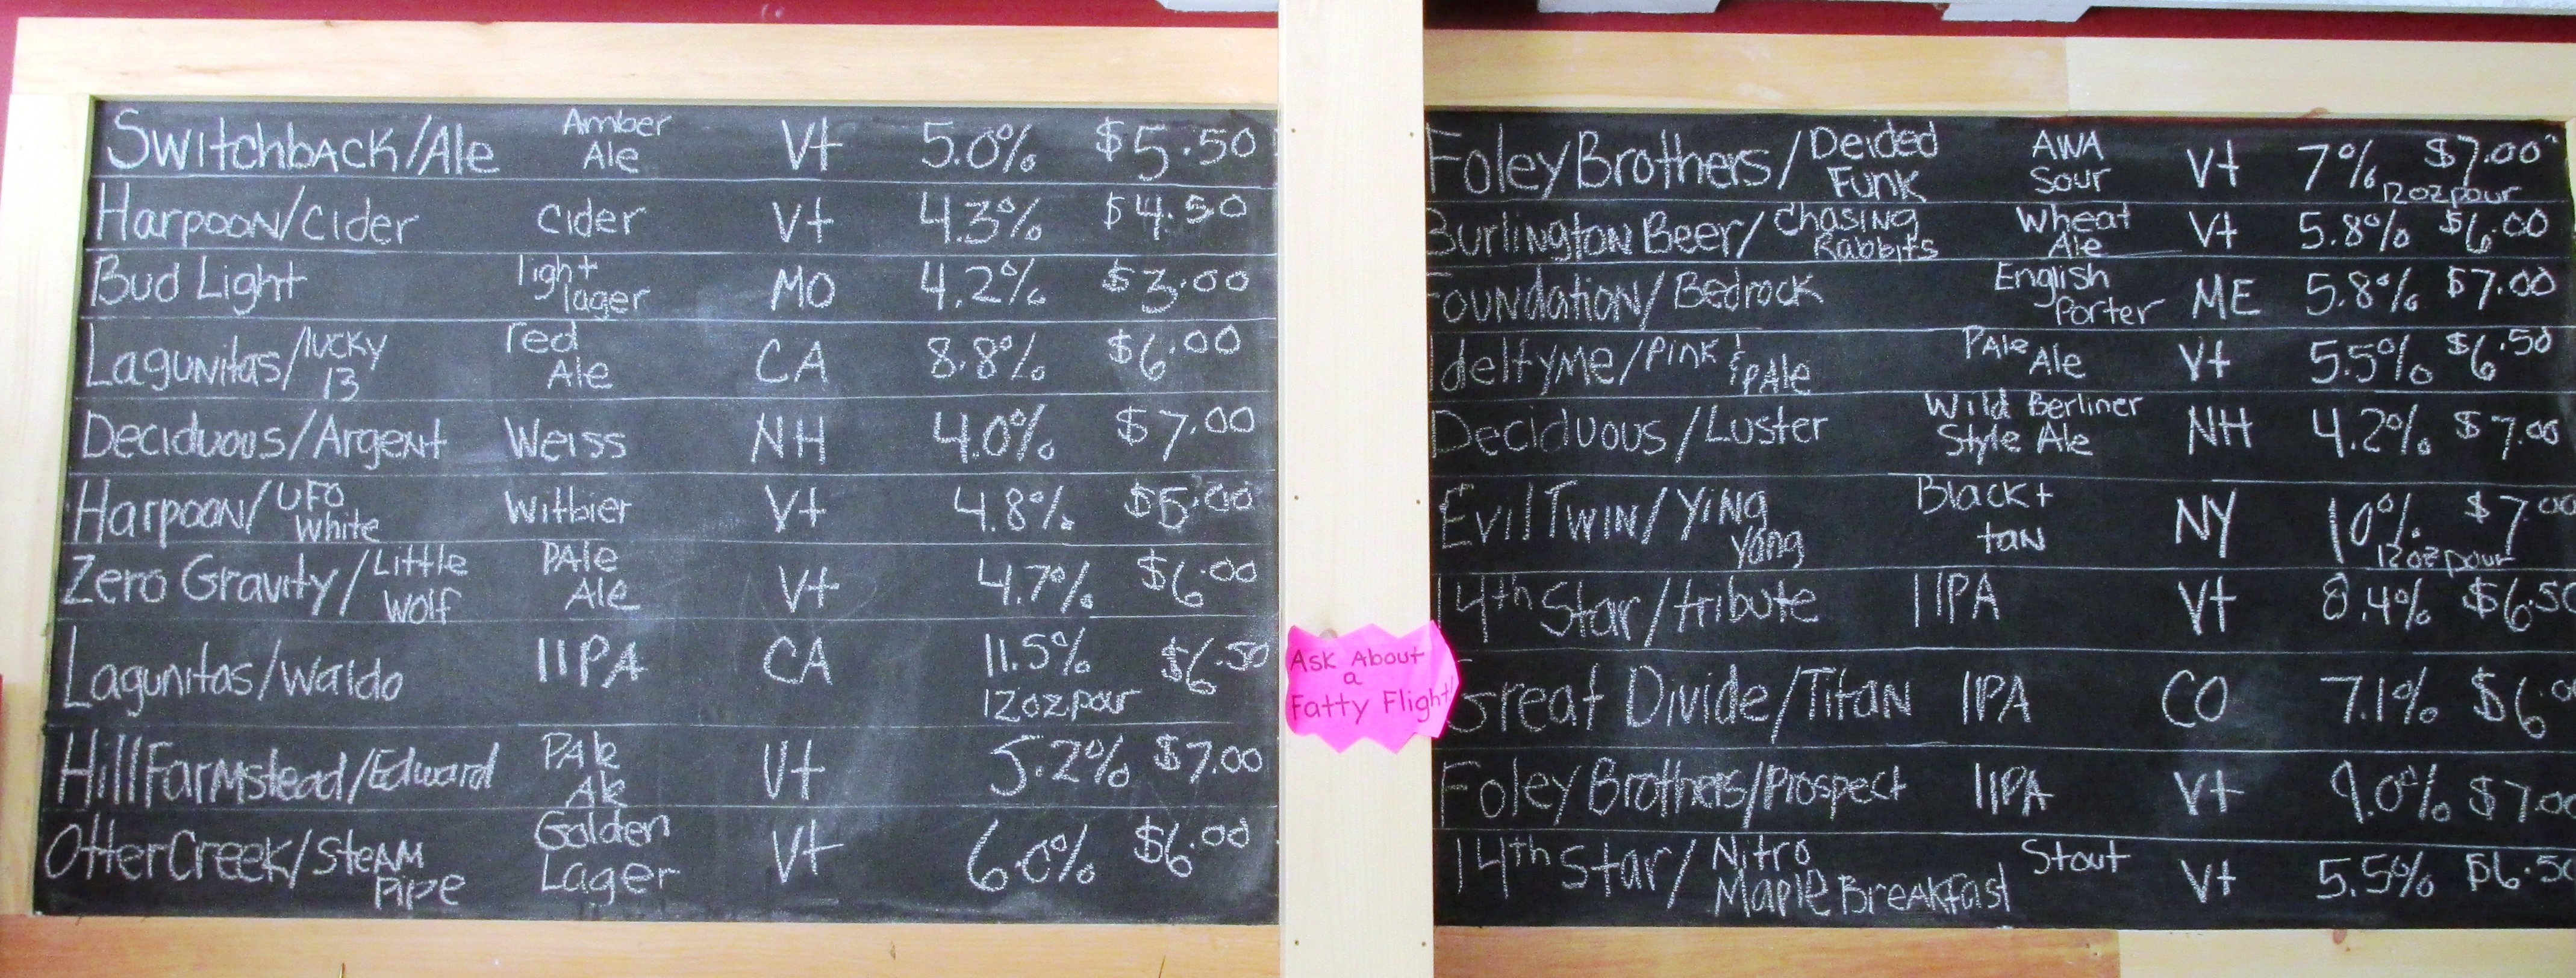 Switchback/Ale Amber Ale Vt 5.0% $5.50
Harpoon/Cider Cider Vt 4.3% $4.50
Bud Light light lager MO 4.2% $3.00
Lagunitas/lucky 13 red Ale CA 8.8% $6.00
Deciduous/Argent Weiss NH 4.0% $7.00
Harpoon/UFO White Witbier Vt 4.8% $5.00
Zero Gravity/Little Wolf Pale Ale Vt 4.7% $6.00
Lagunitas/Waldo IIPA CA 11.5% 12oz pour $6.50
Hill Farmstead/Edward Pale Ale Vt 5.2% $7.00
Otter Creek/Steam Pipe Golden Lager Vt 6.0% $6.00
Ask About
a
Fatty Flight!
Foley Brothers/Deided Funk AWA Sour Vt 7% $7.00 12oz pour
Burlington Beer/Chasing Rabbits Wheat Ale Vt 5.8% $6.00
Foundation/Bedrock English Porter ME 5.8% $7.00
deltyme/Pink & pAle PAle Ale Vt 5.5% $6.50
Deciduous/Luster Wild Berliner Style Ale NH 4.2% $7.00
Evil Twin/Ying Yang Black + tan NY 10% $7.00 12oz pour
14th Star/tribute IIPA Vt 8.4% $6.50
Great Divide/Titan IPA CO 7.1% $6.0
Foley Brothers/Prospect IIPA Vt 9.0% $7.00
14th Star/Nitro Maple Breakfast Stout Vt 5.5% $6.50